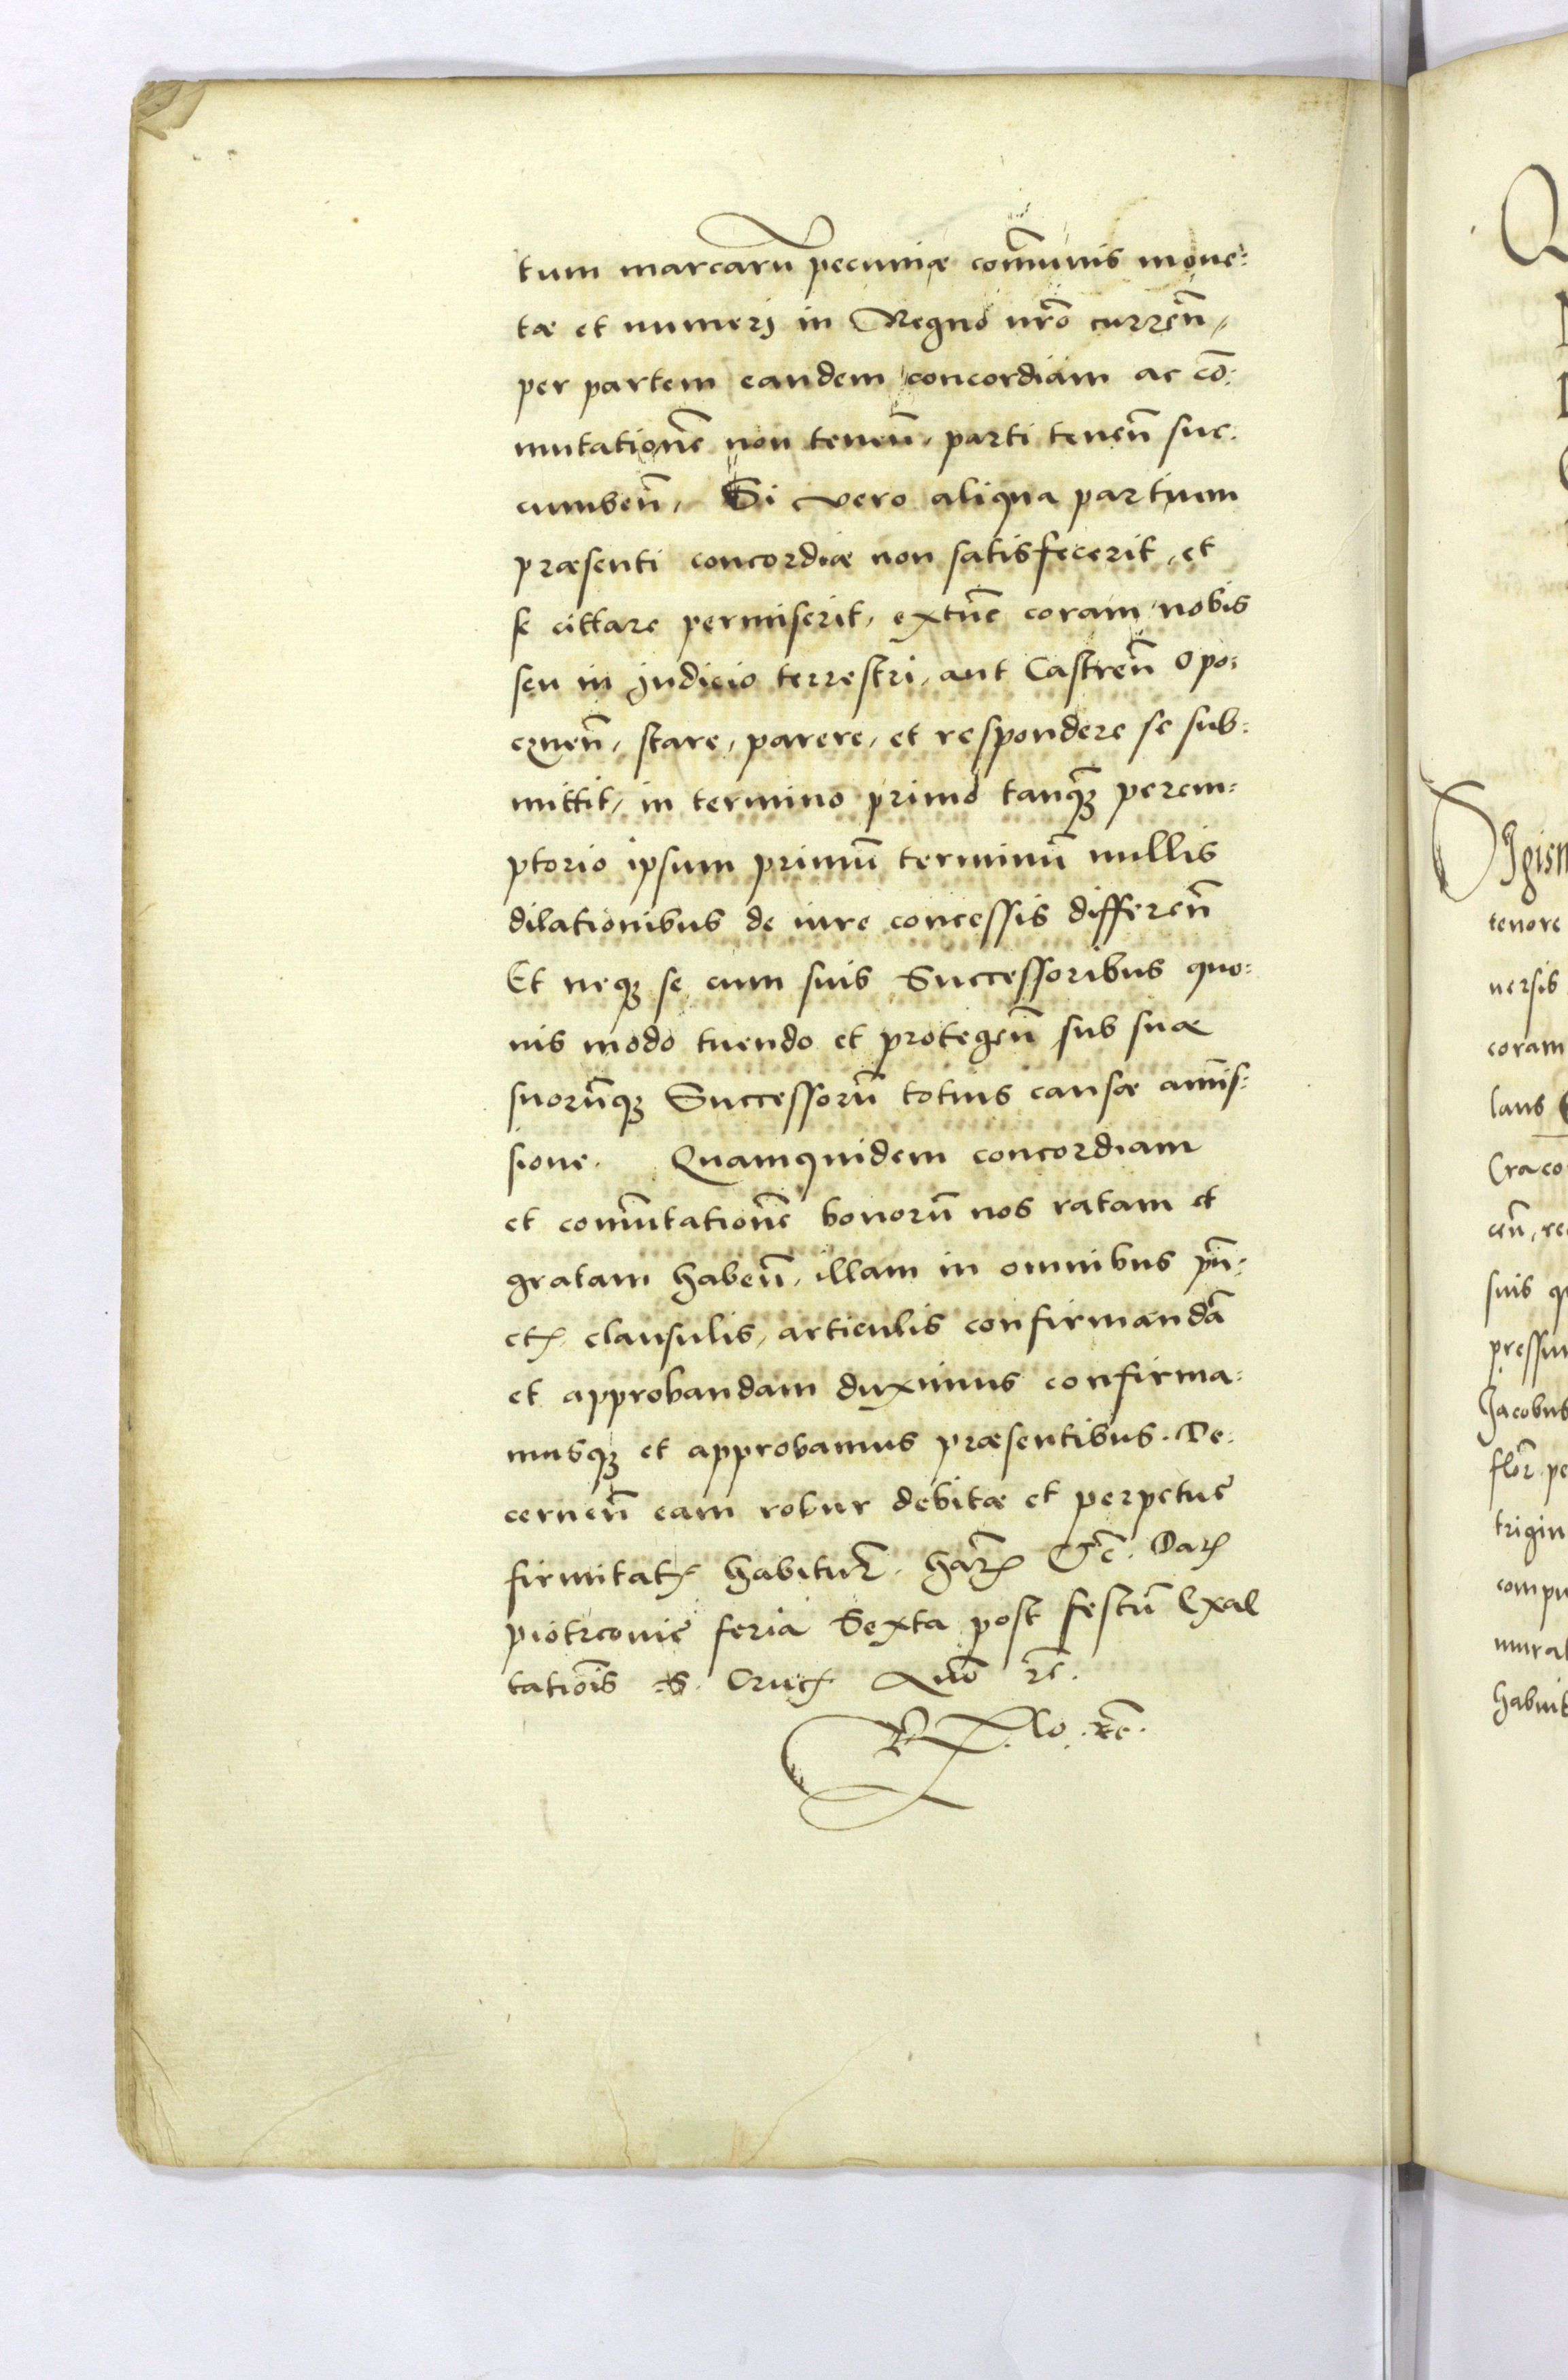 tum marcaru᷃ pecuniæ co᷃munis mone:
tæ et numerj in Regno nr᷃o curren᷃,
per partem eandem concordiam ac co᷃:
mutatione᷃ non tenen᷃, parti tenen᷃ suc:
cumben᷃, Si vero aliqua partium
præsenti concordiæ non satisfecerit, et
se cittare permiserit, extu᷃c coram nobis
seu in judicio terrestri, aut Castren᷃ Opo:
cznen᷃, stare, parere, et respondere se sub:
mittit, in termino primo tanqꝫ perem:
ptorio ipsum primu᷃ terminu᷃ nullis
dilationibus de iure concessis differen᷃
Et neqꝫ se cum suis Successoribus quo:
uis modo tuendo et protegen᷃ sub suæ
suoru᷃qꝫ Successoru᷃ totius causæ amis:
sione. Quamquidem concordiam
et com᷃utatione᷃ bonoru᷃ nos ratam et
gratam haben᷃, illam in omnibus pun᷃:
ctꝭ clausulis, articulis confirmanda᷃
et approbandam duximus confirma:
musqꝫ et approbamus præsentibus. De:
cernen᷃ eam robur debitæ et perpetuę
firmitatꝭ habitur᷃. har᷃ꝭ &c᷃. Datꝭ
piotrcovię feria Sexta post festu᷃ Exal
tatio᷃is S. Crucꝭ Ann᷃o rc᷃.
Rꝭ. lo. rc᷃.
Q
Sigism
tenore
uersis
coram
laus
Craco
cen᷃, re
suis q
pressiu
Jacobus
flor᷃ pe
trigin
compu
mura
habuit